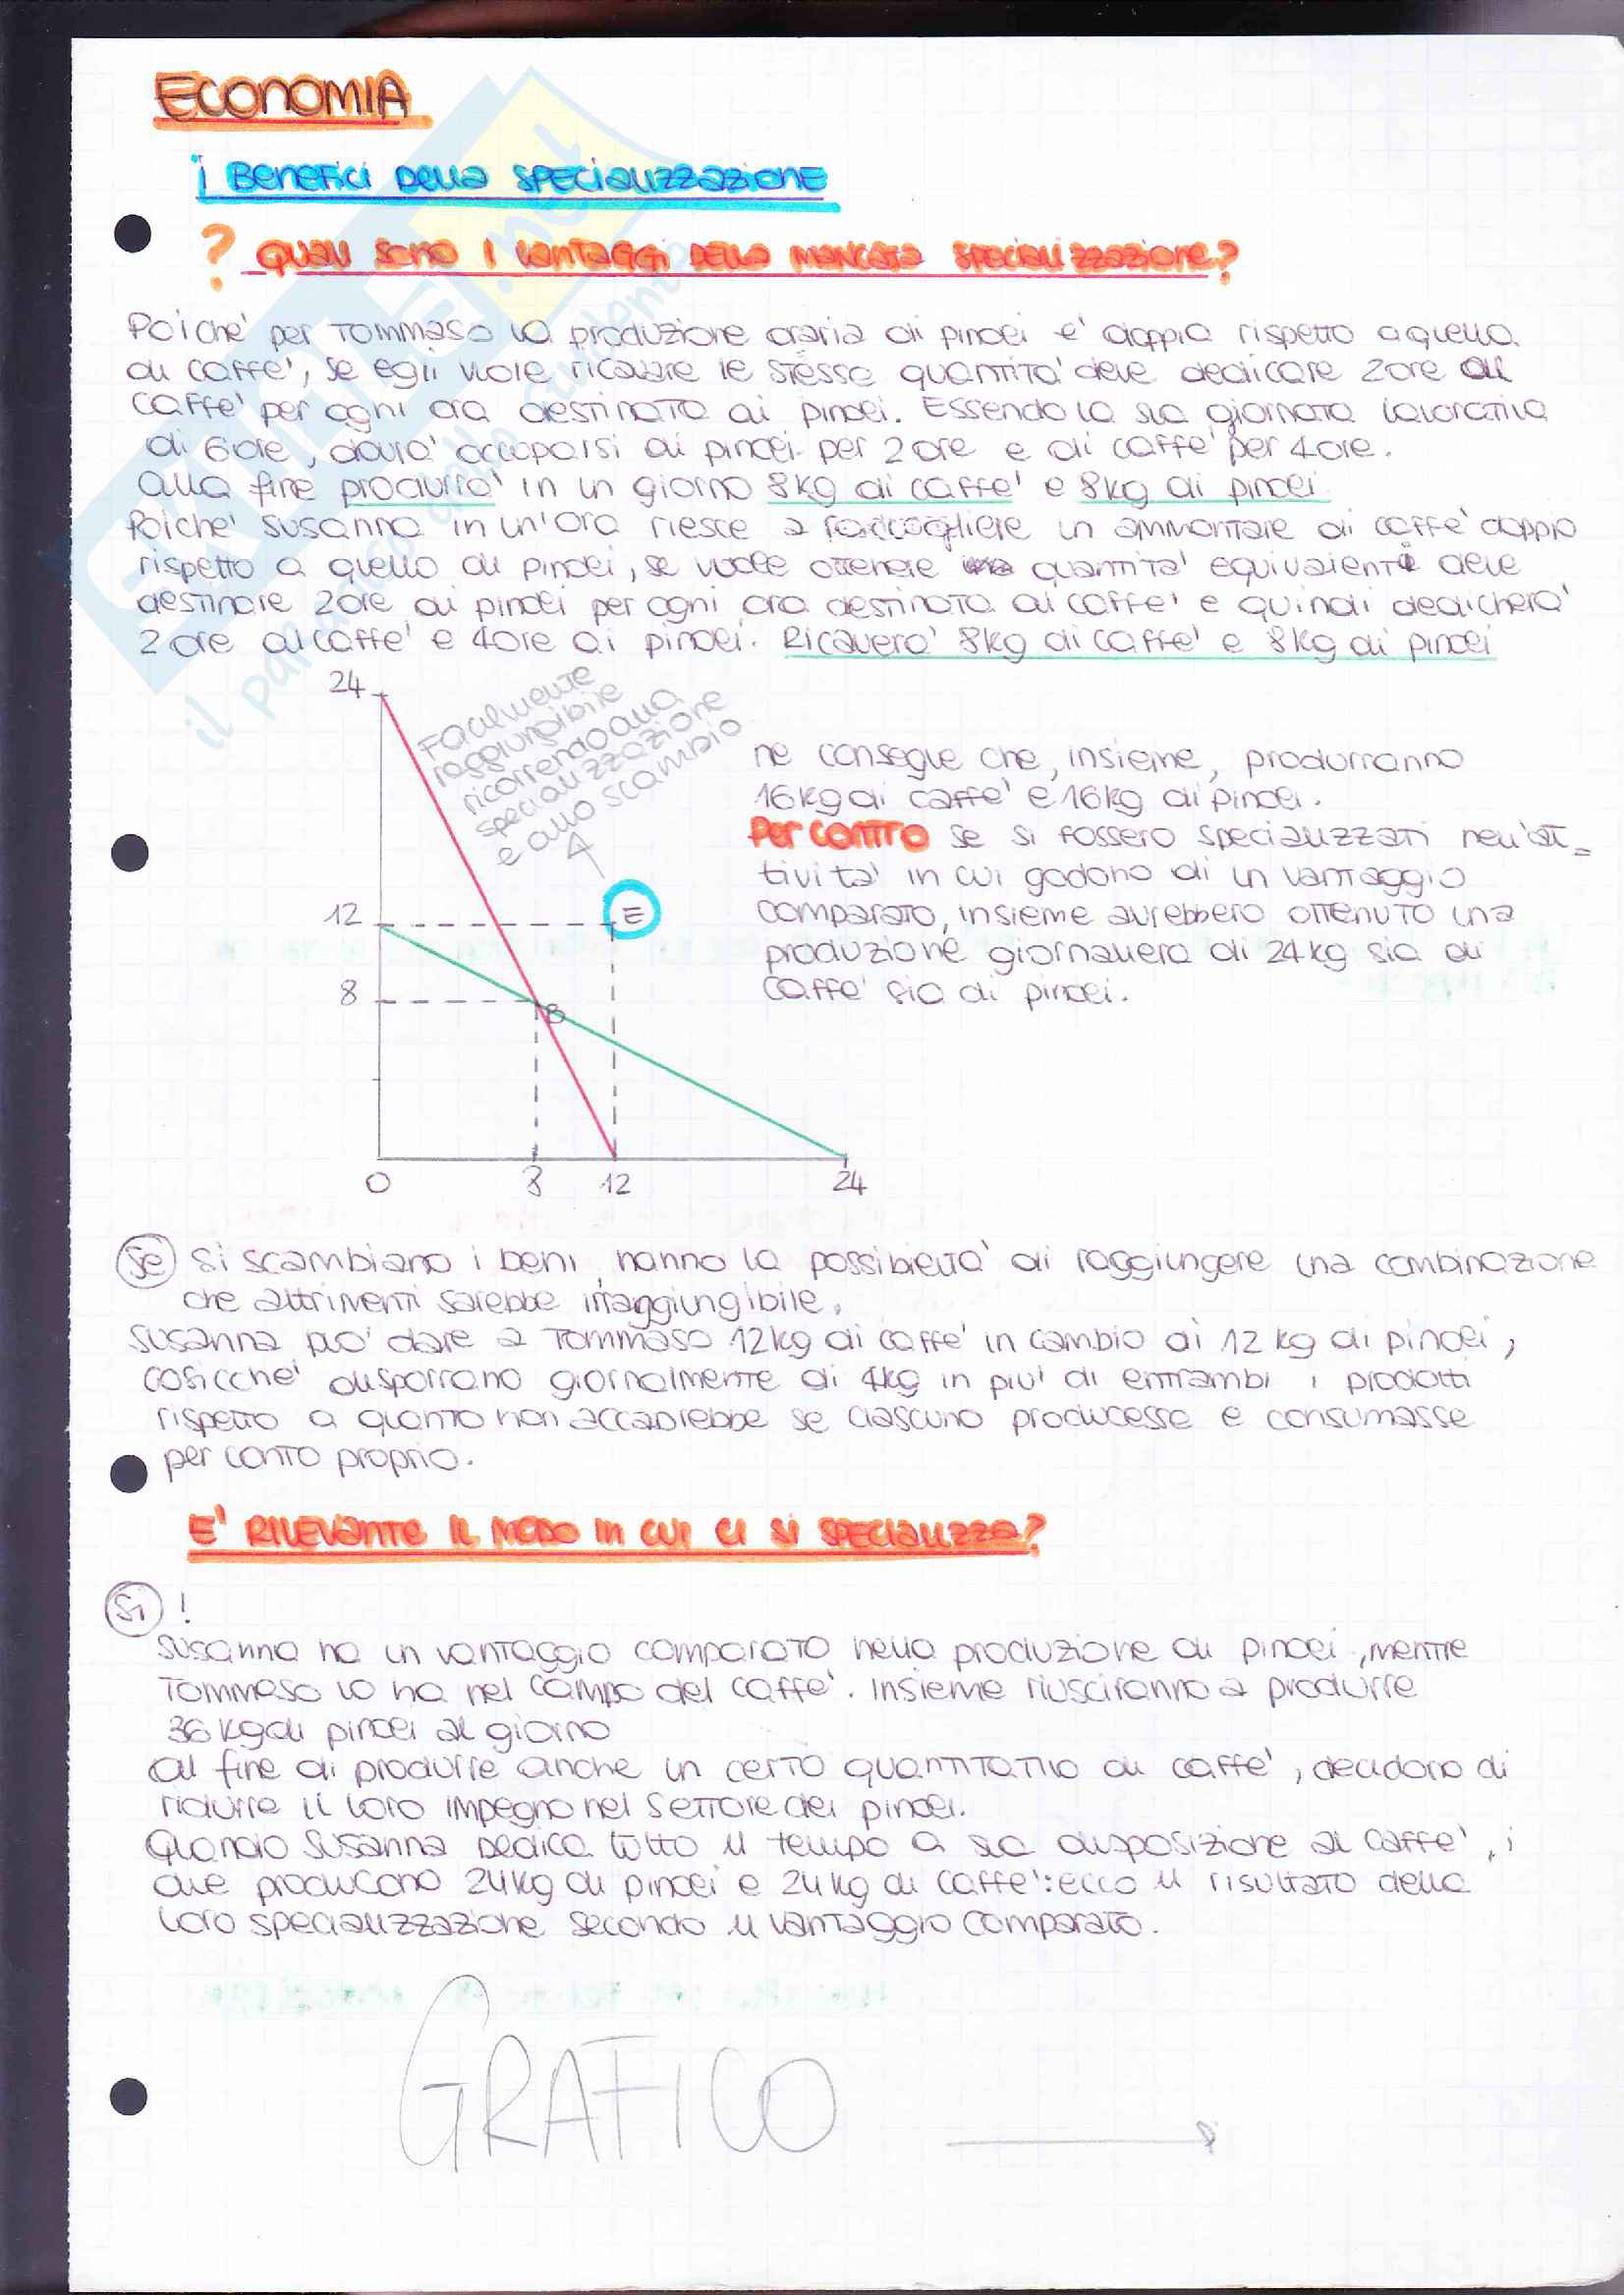 ECONOMIA
i Benefici Della SPECializzazione
? Quali sono i vantaggi della mancata specializzazione?
Poiche' per Tommaso la produzione oraria di pinoli e' doppia rispetto a quella
di caffe', se egli vuole ricavare le stesse quantita' deve dedicare 2 ore al
caffe' per ogni ora destinata ai pinoli. Essendo la sua giornata lavorativa
di 6 ore, dovra' occuparsi di pinoli per 2 ore e di caffe' per 4 ore.
Alla fine produrra' in un giorno 8kg di caffe' e 8kg di pinoli
Poiche' Susanna in un'ora riesce a raccogliere un ammontare di caffe' doppio
rispetto a quello di pinoli, se vuole ottenere quantita' equivalenti deve
destinare 2 ore ai pinoli per ogni ora destinata al caffe' e quindi dedichera'
2 ore al caffe' e 4 ore ai pinoli. Ricavera' 8kg di caffe' e 8kg di pinoli
24
Facilmente
raggiungibile
ricorrendo alla
specializzazione
e allo scambio
ne consegue che, insieme, produrranno
16kg di caffe' e 16kg di pinoli.
Per contro se si fossero specializzati nell'at=
tivita' in cui godono di un vantaggio
comparato, insieme avrebbero ottenuto una
produzione giornaliera di 24kg sia di
caffe' sia di pinoli.
12
E
8
B
0 8 12 24
Se si scambiano i beni, hanno la possibilita' di raggiungere una combinazione
che altrimenti sarebbe irraggiungibile.
Susanna puo' dare a Tommaso 12kg di caffe' in cambio di 12 kg di pinoli,
cosicche' disporrano giornalmente di 4kg in piu' di entrambi i prodotti
rispetto a quanto non accadrebbe se ciascuno producesse e consumasse
per conto proprio.
E' RILEVANTE IL MODO IN CUI CI SI SPECIALIZZA?
Si!
Susanna ha un vantaggio comparato nella produzione di pinoli, mentre
Tommaso lo ha nel campo del caffe'. Insieme riusciranno a produrre
36 kg di pinoli al giorno
al fine di produrre anche un certo quantitativo di caffe', decidono di
ridurre il loro impegno nel settore dei pinoli.
Quando Susanna dedica tutto il tempo a sua disposizione al caffe', i
due producono 24kg di pinoli e 24kg di caffe': ecco il risultato della
loro specializzazione secondo il vantaggio comparato.
GRAFICO